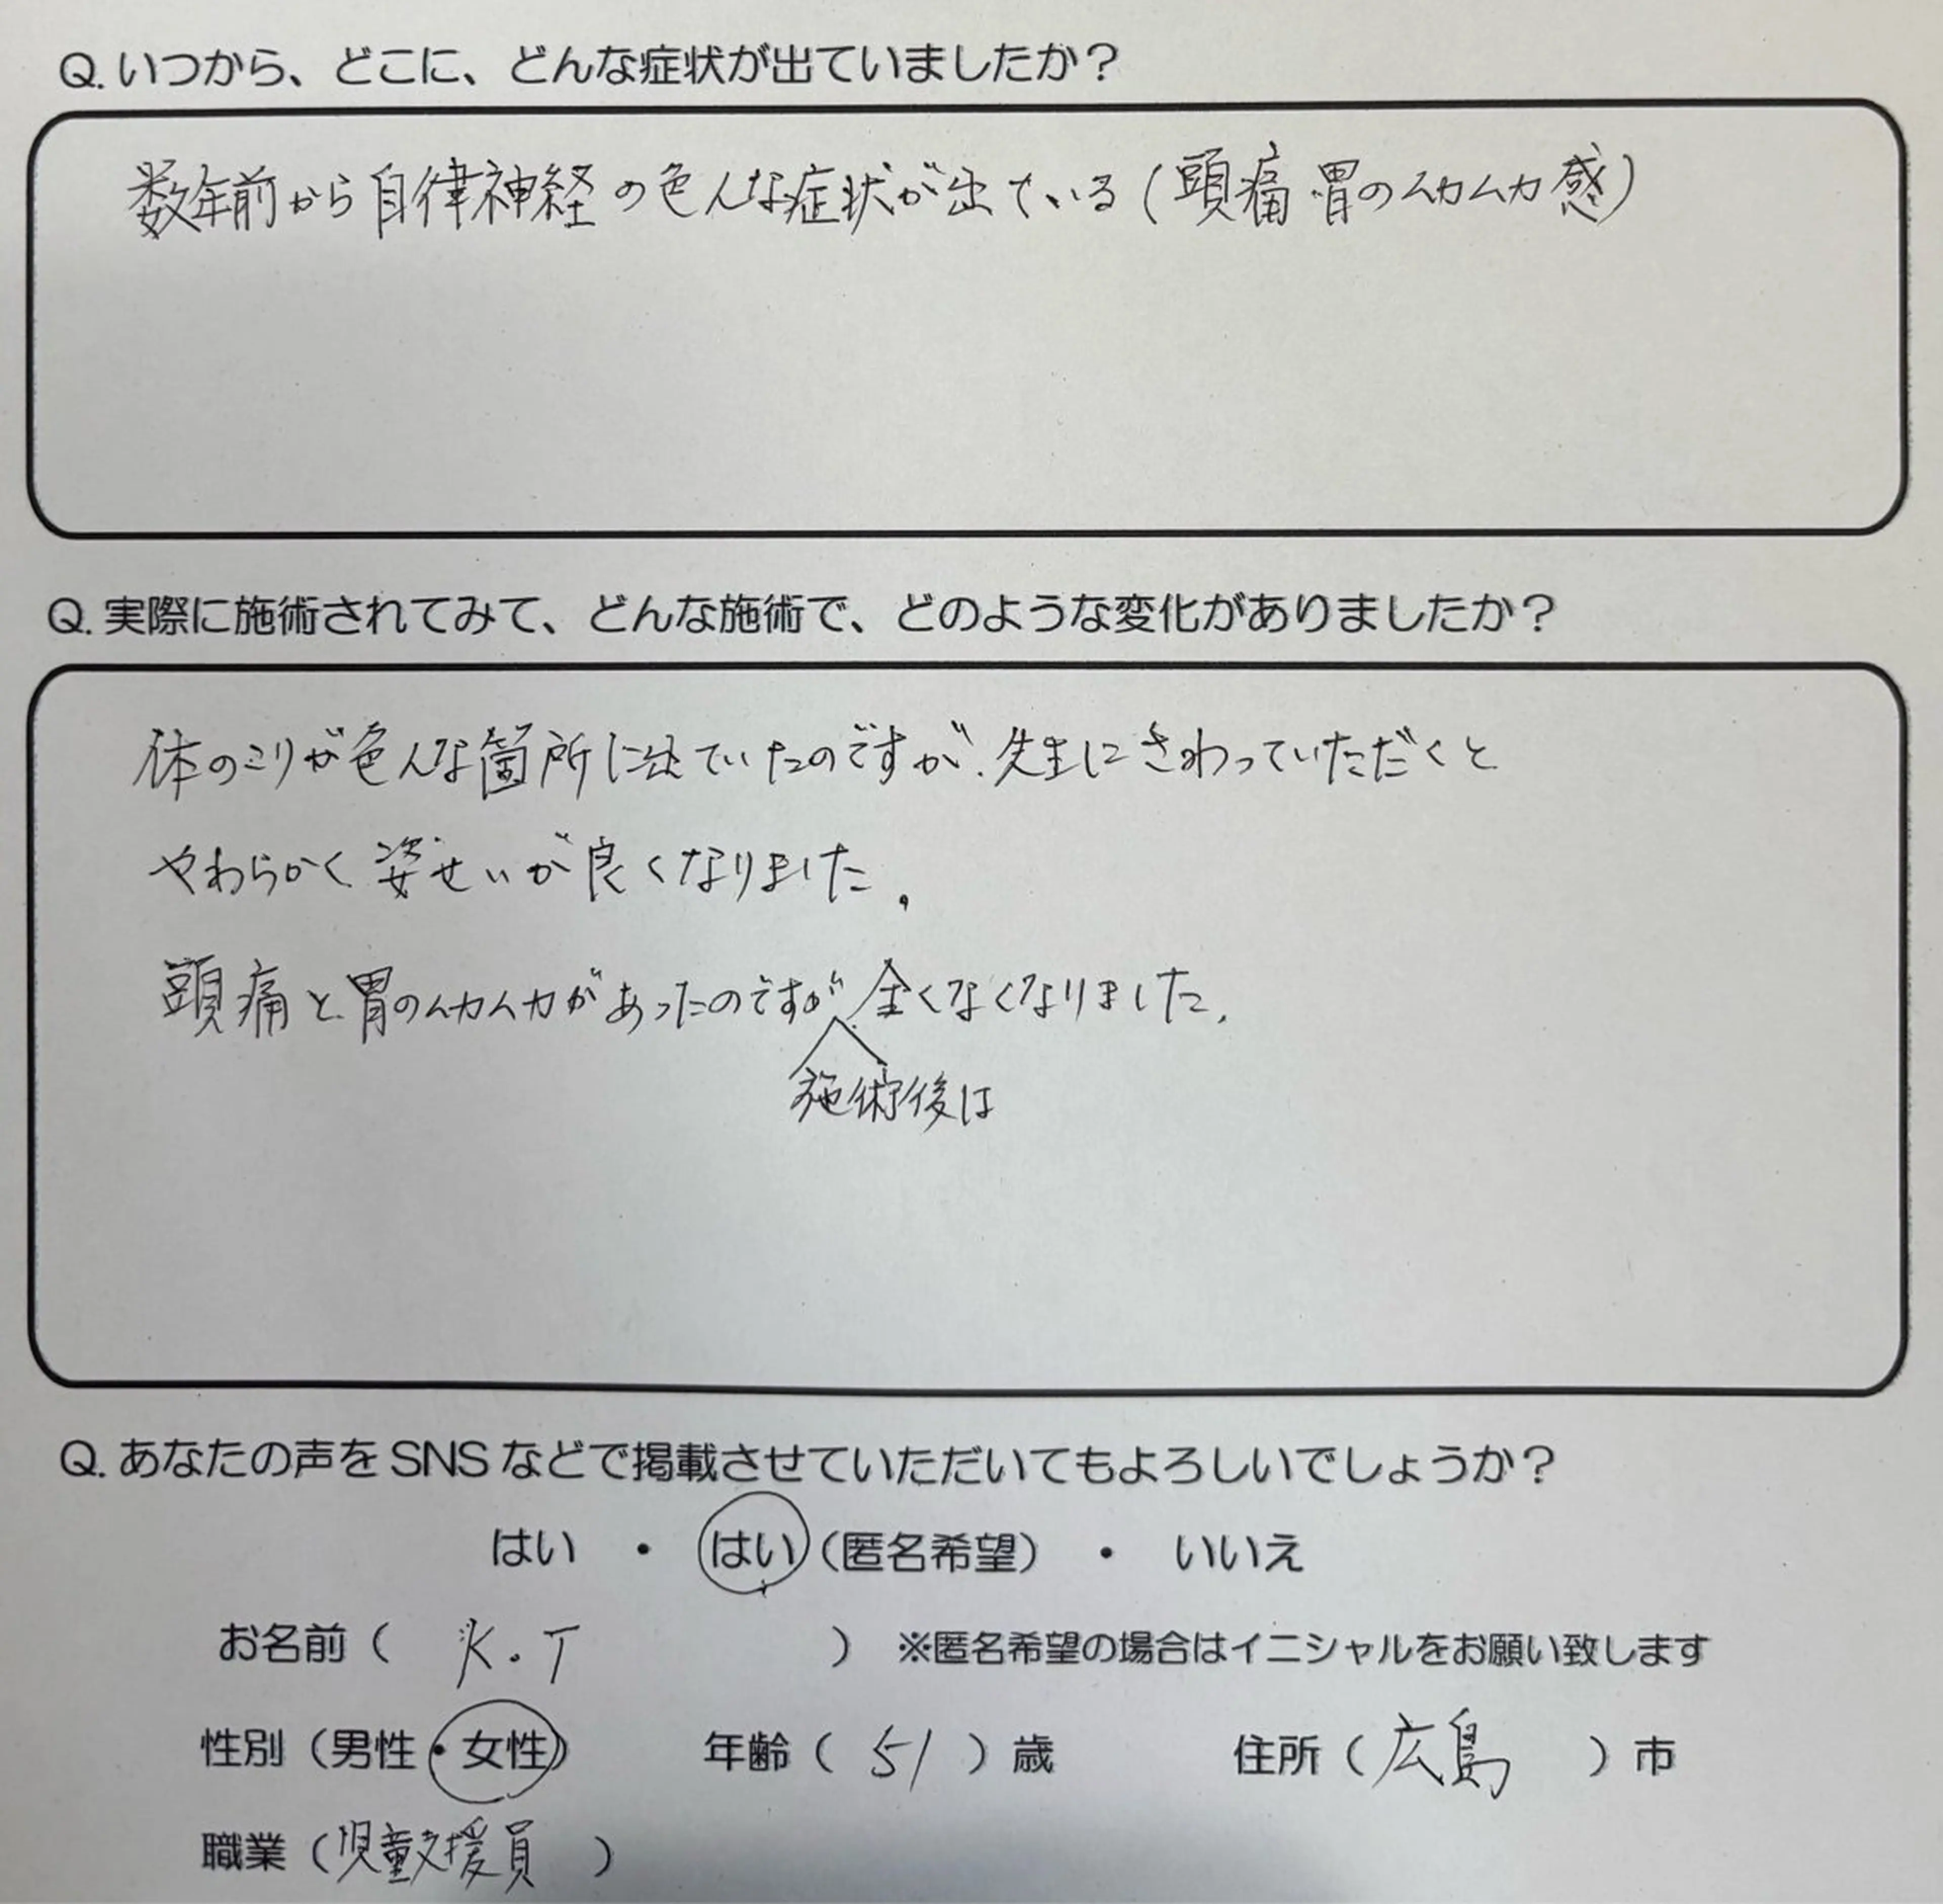 Q. いつから、どこに、どんな症状が出ていましたか？
数年前から自律神経の色んな症状が出ている(頭痛 胃のムカムカ感)
Q. 実際に施術されてみて、どんな施術で、どのような変化がありましたか？
体のこりが色んな箇所に出ていたのですが、先生にさわっていただくと
やわらかく姿せいが良くなりました。
頭痛と胃のムカムカがあったのですが全くなくなりました。
施術後は
Q. あなたの声を SNS などで掲載させていただいてもよろしいでしょうか？
はい ・ はい（匿名希望） ・ いいえ
お名前（ K.T ） ※匿名希望の場合はイニシャルをお願い致します
性別（男性・女性） 年齢（ 51 ）歳 住所（ 広島 ）市
職業（児童支援員 ）